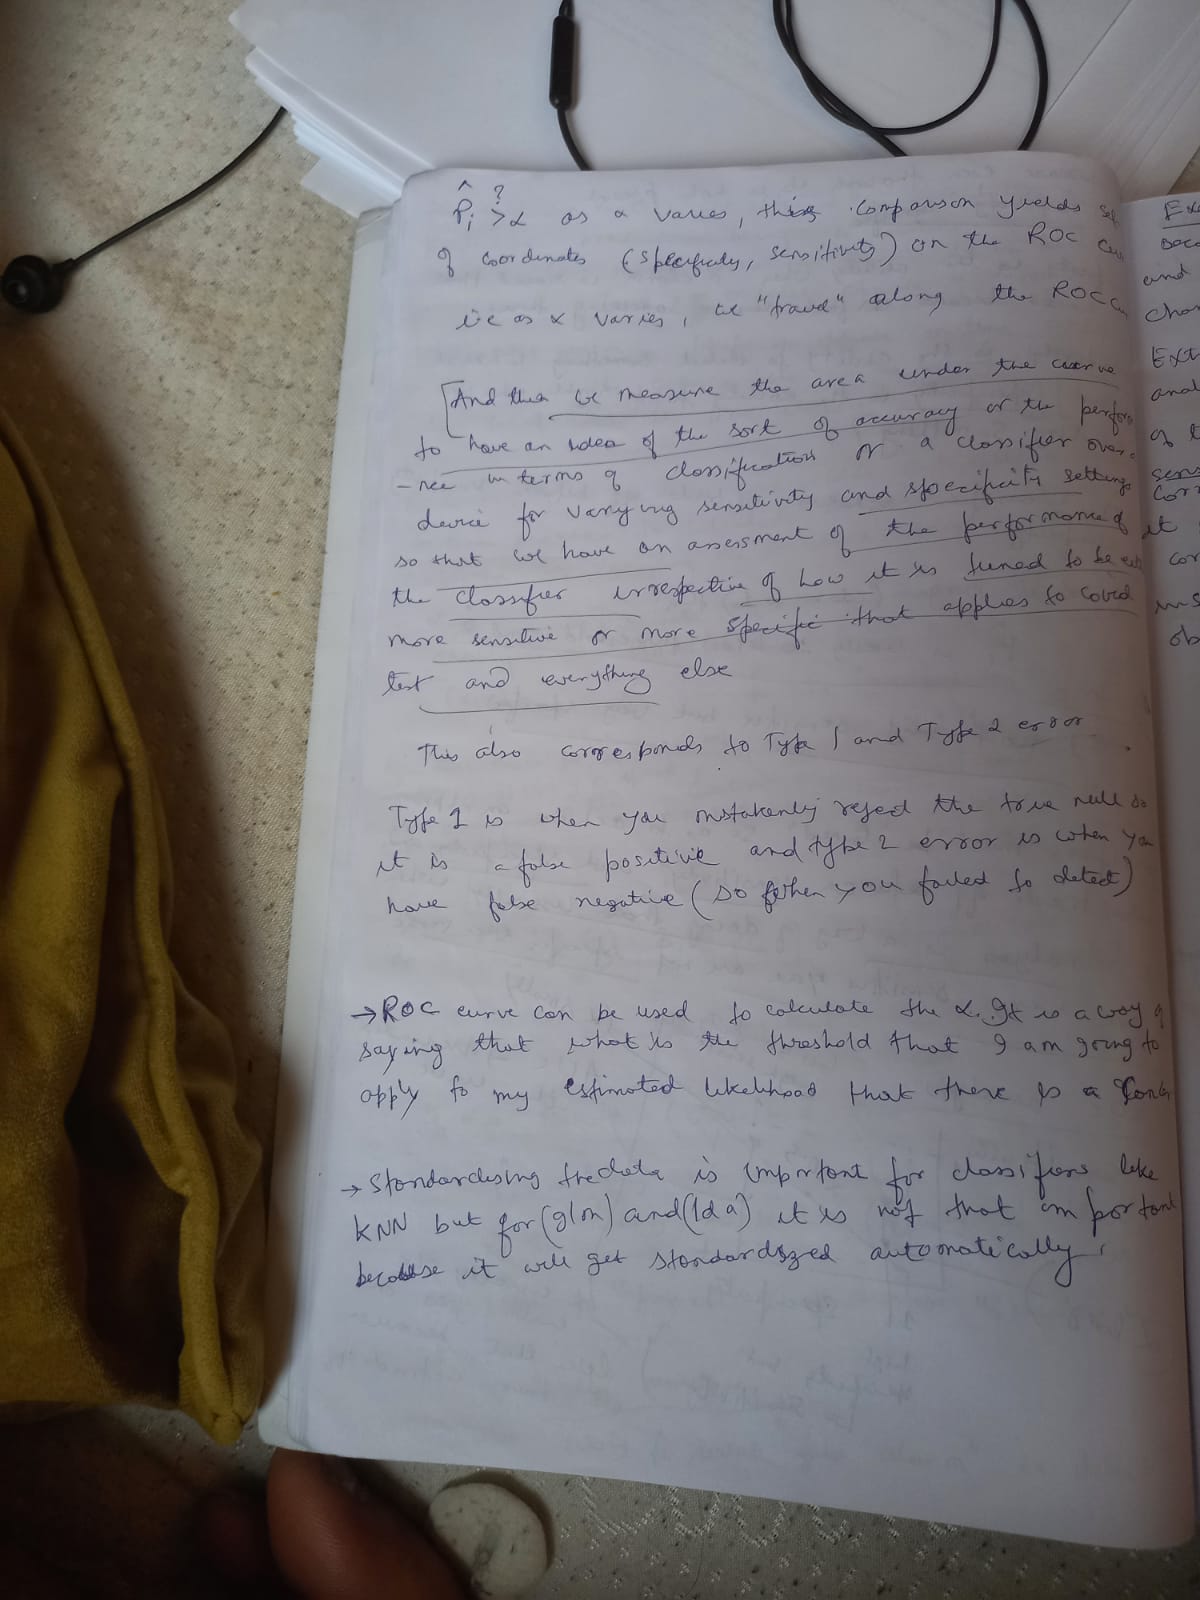 P̂i >? α as a varies, this comparison yields set
of coordinates (specificity, sensitivity) on the ROC
i.e as α varies, we "travel" along the ROC
[And then we measure the area under the curve
to have an idea of the sort of accuracy or the perform
-nce in terms of classification or a classifier over
device for varying sensitivity and specificity settings
so that we have an assessment of the performance of
the classifier irrespective of how it is tuned to be
more sensitive or more specific that applies to covid
test and everything else
This also corresponds to Type 1 and Type 2 error
Type 1 is when you mistakenly reject the true null so
it is a false positive and type 2 error is when you
have false negative (so when you failed to detect)
→ ROC curve can be used to calculate the α. It is a way of
saying that what is the threshold that I am going to
apply to my estimated likelihood that there is a
→ Standardising the data is important for classifiers like
KNN but for (glm) and (lda) it is not that important
because it will get standardized automatically.
and
Ext